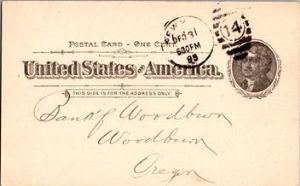 POSTAL CARD - ONE CENT
United States of America.
THIS SIDE IS FOR THE ADDRESS ONLY.
DEC 31
630PM
14
Bank of Woodburn
Woodburn
Oregon